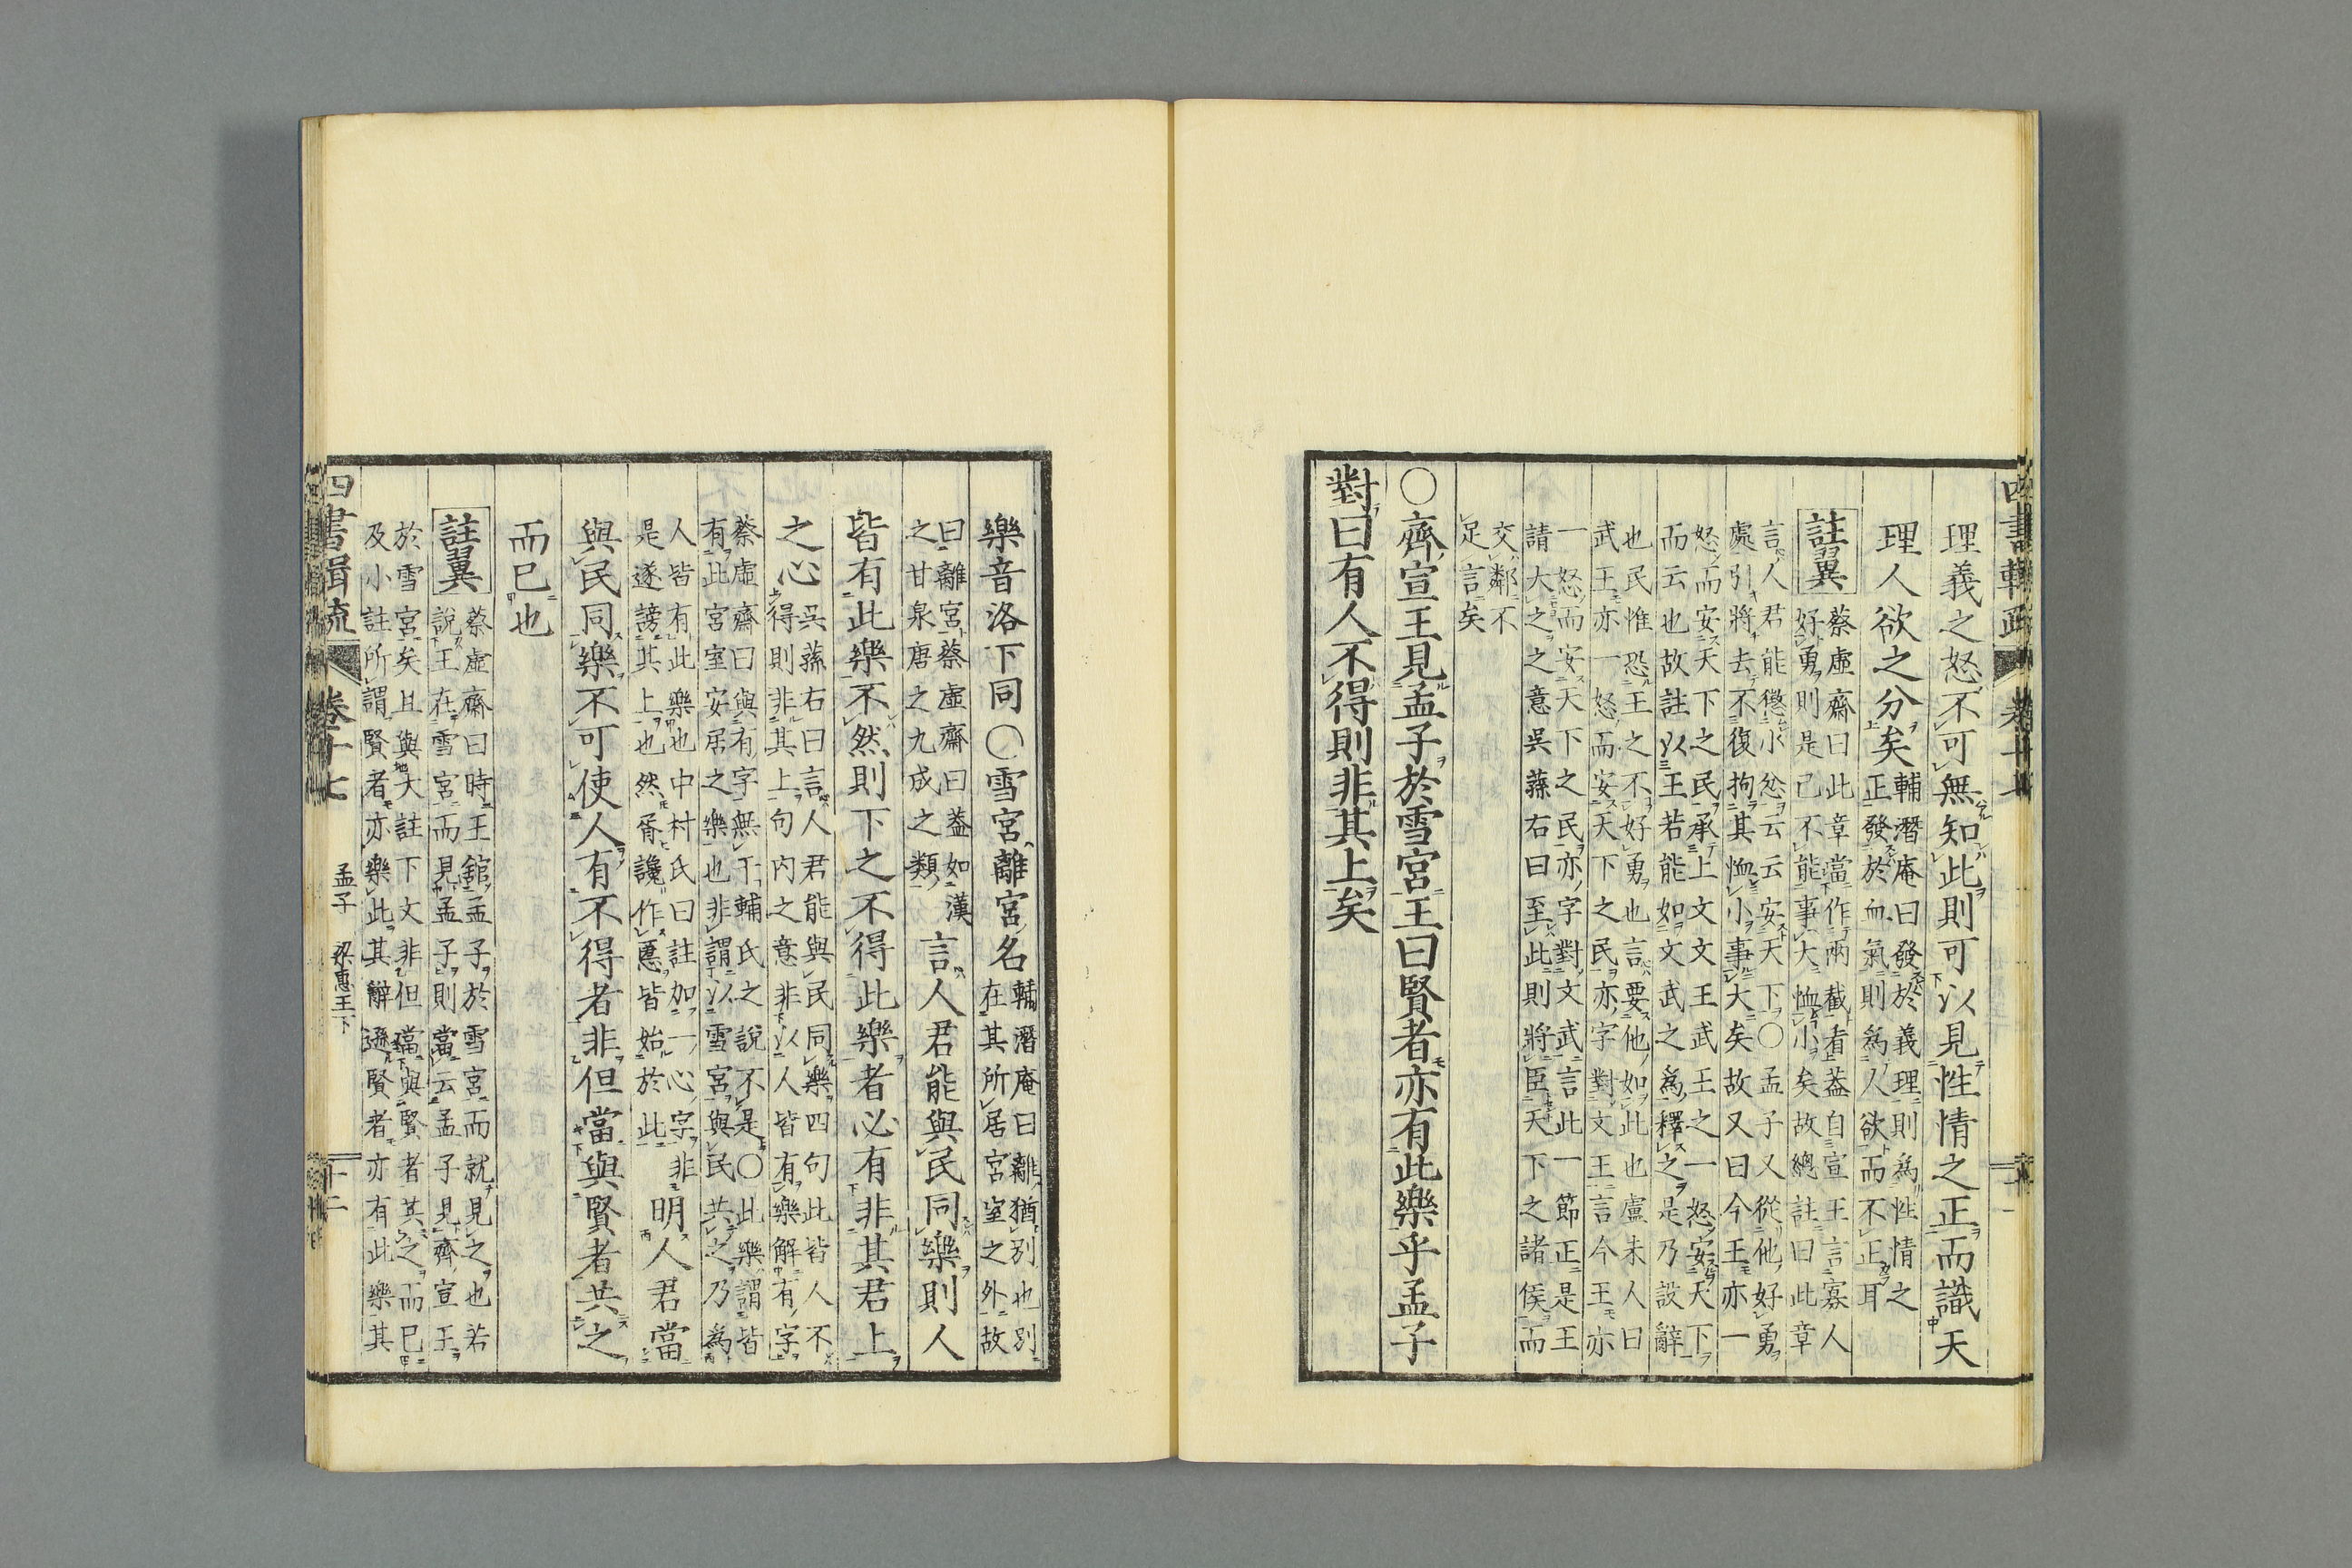 理義之怒不可無知此則可以見性情之正而識天
理人欲之分矣
輔潛庵曰發於義理則為性情之
正發於血氣則為人欲而不正耳
註翼
蔡虛齋曰此章當作兩截看蓋自宣王言寡人
好勇則是已不能事大恤小矣故總註曰此章
言人君能懲小忿云云安天下〇孟子又從他好勇
處引將去不復拘其恤小事大矣故又曰今王亦一
怒而安天下之民承上文文王武王之一怒安天下
而云也故註以王若能如文武之為釋之是乃設辭
也民惟恐王之不好勇也言要他如此也盧未人曰
武王亦一怒而安天下之民亦字對文王言今王亦
一怒而安天下之民亦字對文武言此一節正是王
請大之之意吳蓀右曰至此則將臣天下之諸侯而
交鄰不
足言矣
〇齊宣王見孟子於雪宮王曰賢者亦有此樂乎孟子
對曰有人不得則非其上矣
四書輯疏 卷十七
樂音洛下同〇雪宮離宮名
輔潛庵曰離猶別也別
在其所居宮室之外故
曰離宮蔡虛齋曰蓋如漢
之甘泉唐之九成之類
言人君能與民同樂則人
皆有此樂不然則下之不得此樂者必有非其君上
之心
吳蓀右曰言人君能與民同樂四句此皆人不
得則非其上句內之意非以人皆有樂解有字
蔡虛齋曰與有字無干輔氏之說不是〇此樂謂皆
有此宮室安居之樂也非謂以雪宮與民共之乃為
人皆有此樂也中村氏曰註加一心字非
是遂謗其上也然胥讒作慝皆始於此
明人君當
與民同樂不可使人有不得者非但當與賢者共之
而已也
註翼
蔡虛齋曰時王舘孟子於雪宮而就見之也若
說王在雪宮而見孟子則當云孟子見齊宣王
於雪宮矣且與大註下文非但當與賢者共之而已
及小註所謂賢者亦樂此其辭遜賢者亦有此樂其
四書輯疏 卷十七 孟子 梁惠王下 十二